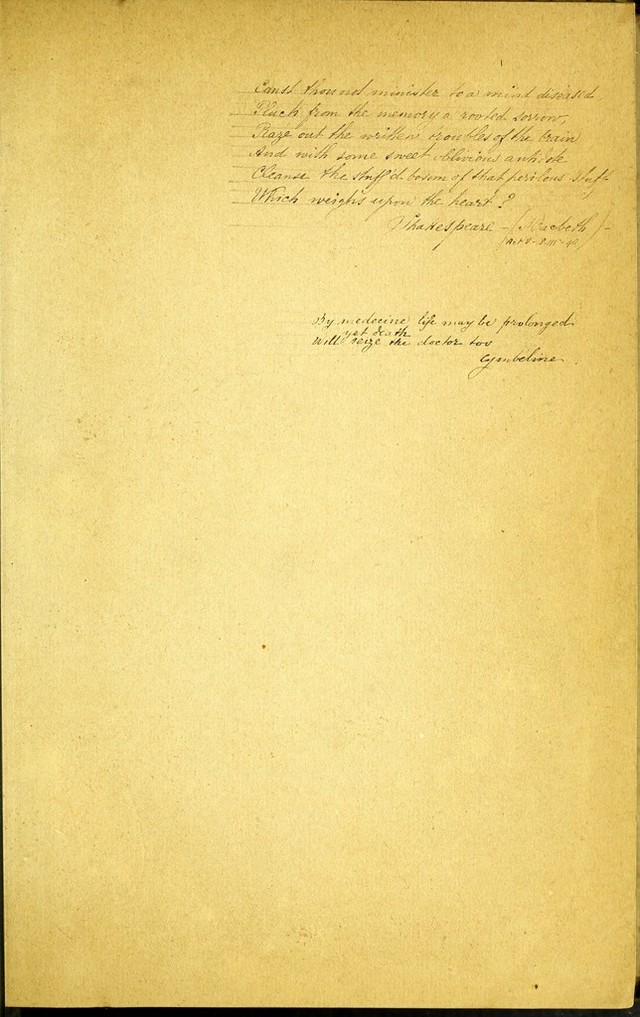 Canst thou not minister to a mind diseased
Pluck from the memory a rooted sorrow,
Raze out the written troubles of the brain
And with some sweet oblivious antidote
Cleanse the stuff'd bosom of that perilous stuff
Which weighs upon the heart?
Shakespeare - (Macbeth) -
(Act V - S. III - 40)
By medecine life may be prolonged
yet death
Will seize the doctor too
Cymbeline.